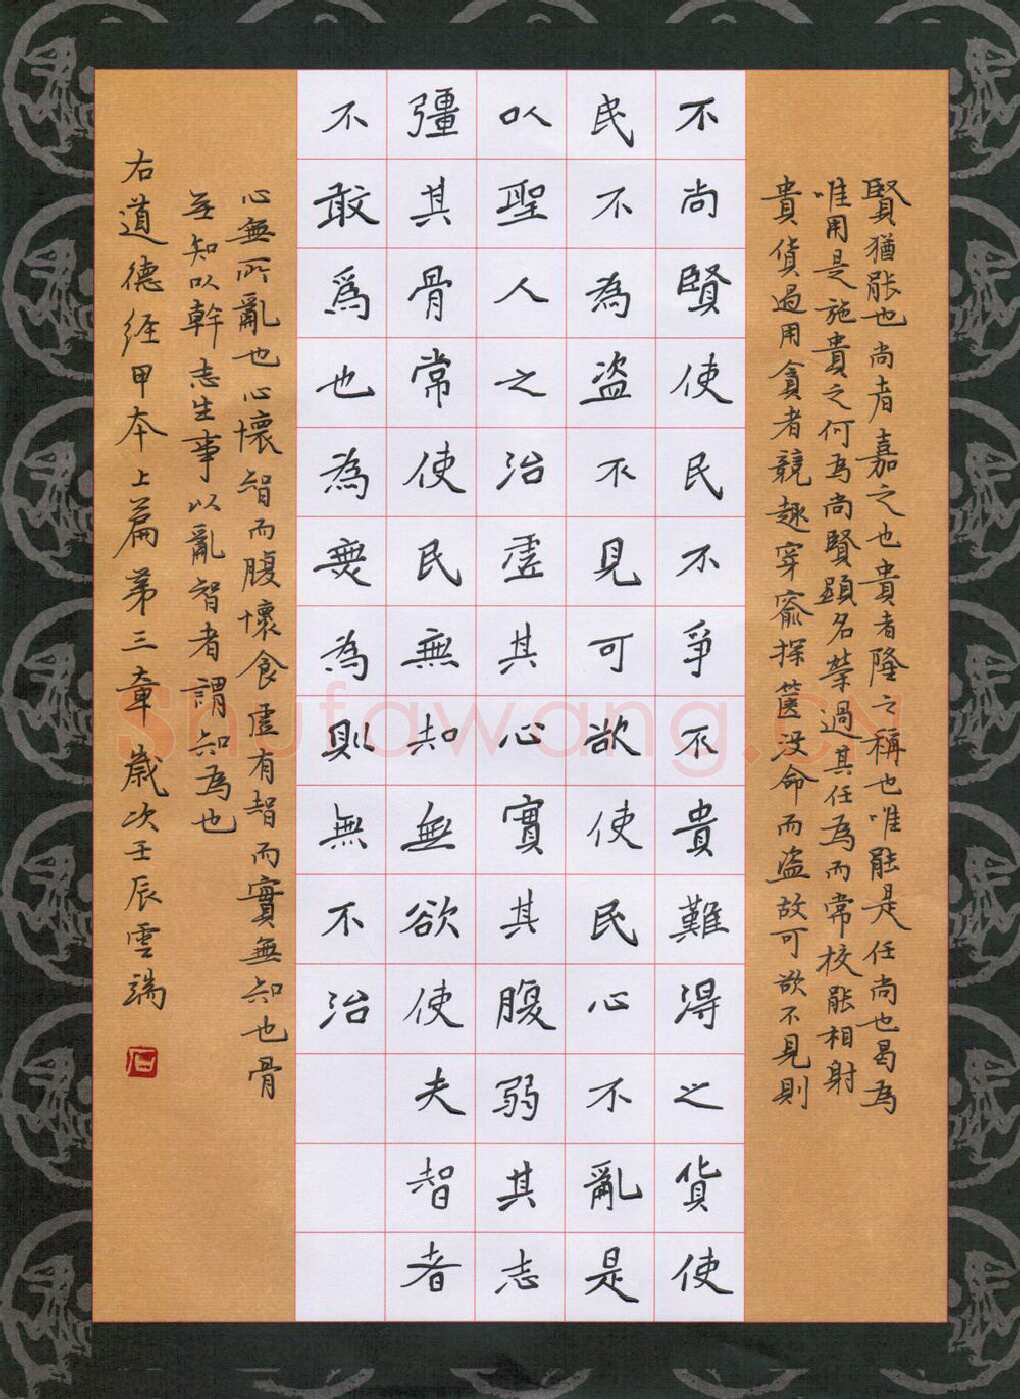 賢猶能也尚者嘉之也貴者隆之稱也唯能是任尚也曷為
唯用是施貴之何為尚賢顯名榮過其任為而常校能相射
貴貨過用貪者競趣穿窬探篋沒命而盜故可欲不見則
不尚賢使民不爭不貴難得之貨使
民不為盜不見可欲使民心不亂是
以聖人之治虛其心實其腹弱其志
彊其骨常使民無知無欲使夫智者
不敢爲也為無為則無不治
心無所亂也心懷智而腹懷食虛有智而實無知也骨
無知以幹志生事以亂智者謂知為也
右道德經甲本上篇第三章歲次壬辰雲端
石
shufawang.cn